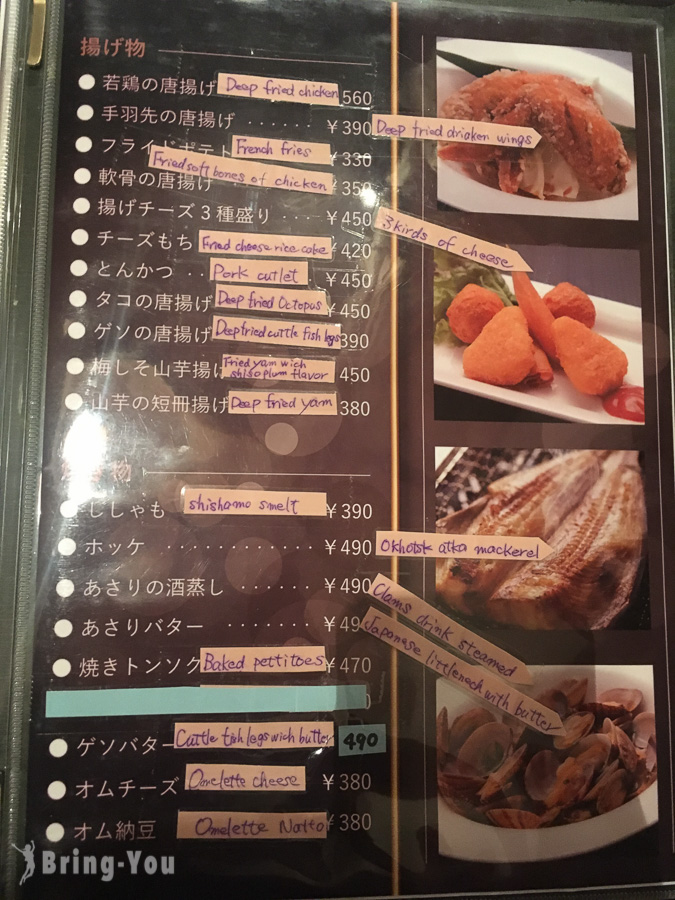 揚げ物
若鶏の唐揚げ Deep fried chicken 560
手羽先の唐揚げ ...... ¥390 Deep fried driaken wings
フライドポテト French fries ¥330
Fried soft bones of chicken
軟骨の唐揚げ ¥350
揚げチーズ3種盛り ... ¥450 3 kirds of cheese
チーズもち Fried cheese rice cake ¥420
とんかつ .. Pork cutlet ¥450
タコの唐揚げ Deep fried Octopus ¥450
ゲソの唐揚げ Deep fried cuttle fish legs 390
梅しそ山芋揚げ Fried yam wich shiso plum flavor 450
山芋の短冊揚げ Deep fried yam 380
物
ししゃも shishamo smelt ¥390
ホッケ ............ ¥490 Okhotsk atka mackerel
あさりの酒蒸し ...... ¥490 Clams drink steamed
あさりバター ....... ¥490 Japanese littleneck with butter
焼きトンソク Baked pettitoes ¥470
ゲソバター Cuttle fish legs wich butter 490
オムチーズ Omelette cheese ¥380
オム納豆 Omelette Natto ¥380
Bring-You